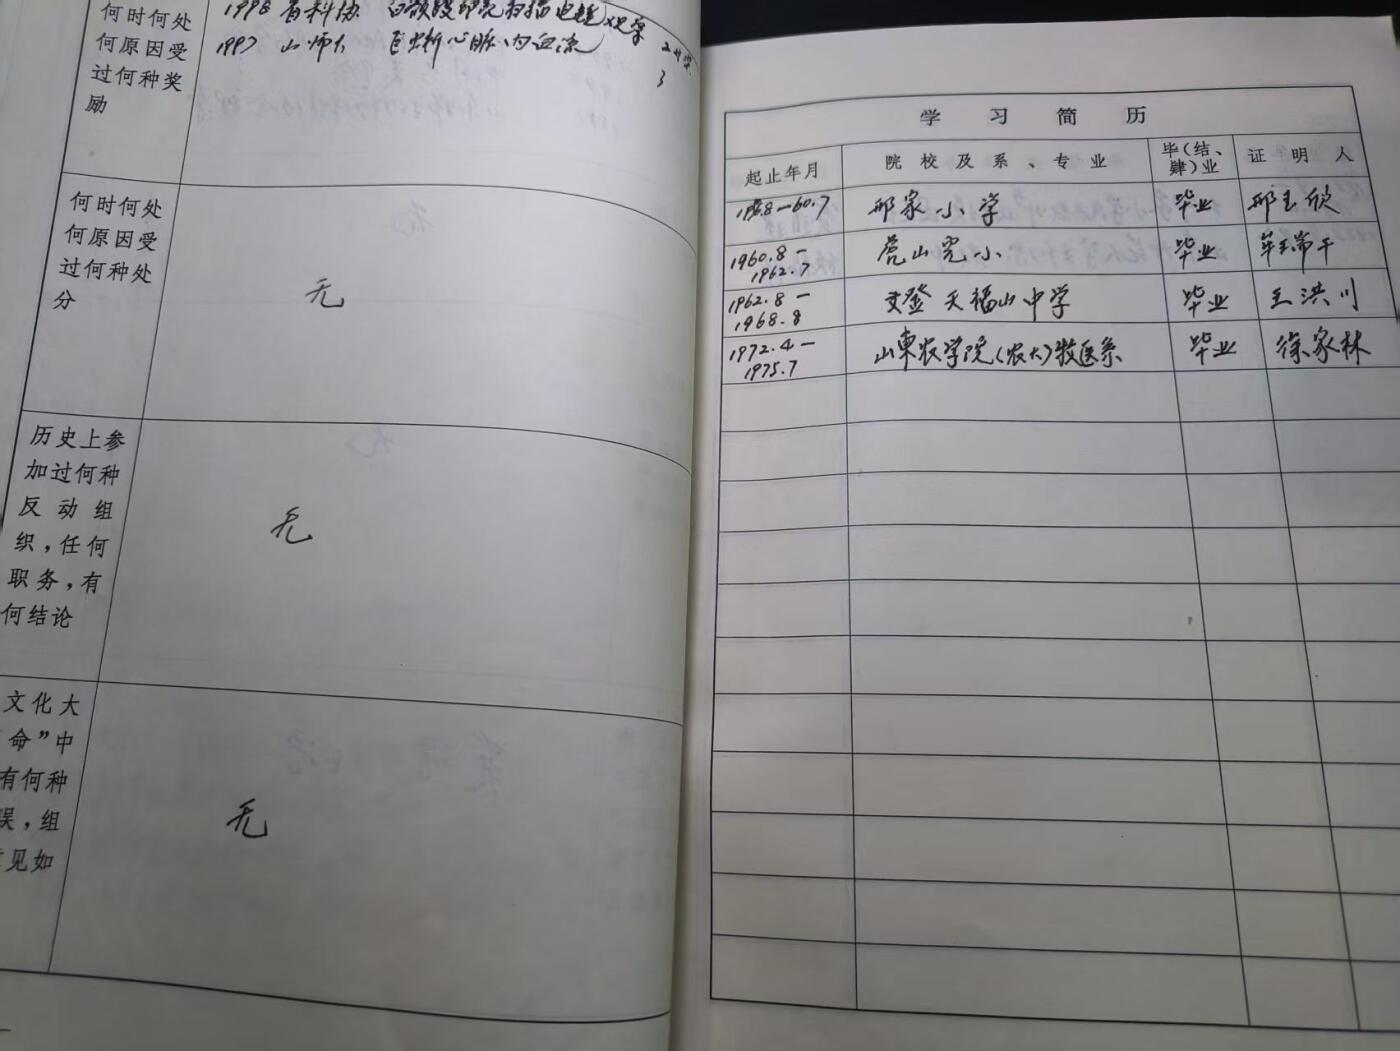 何时何处
何原因受
过何种奖
励
1998 省科协
1997 山师大 心脏内血流
3
何时何处
何原因受
过何种处
分
无
历史上参
加过何种
反动组
织，任何
职务，有
何结论
无
文化大
命”中
有何种
误，组
见如
无
学习简历
起止年月 院校及系、专业 毕(结、肄)业 证明人
60.7 邢家小学 毕业 邢玉欣
1960.8－1962.7 虎山完小 毕业
1962.8－1968.8 文登天福山中学 毕业 王洪川
1972.4－1975.7 山東农学院(农大)牧医系 毕业 徐家林